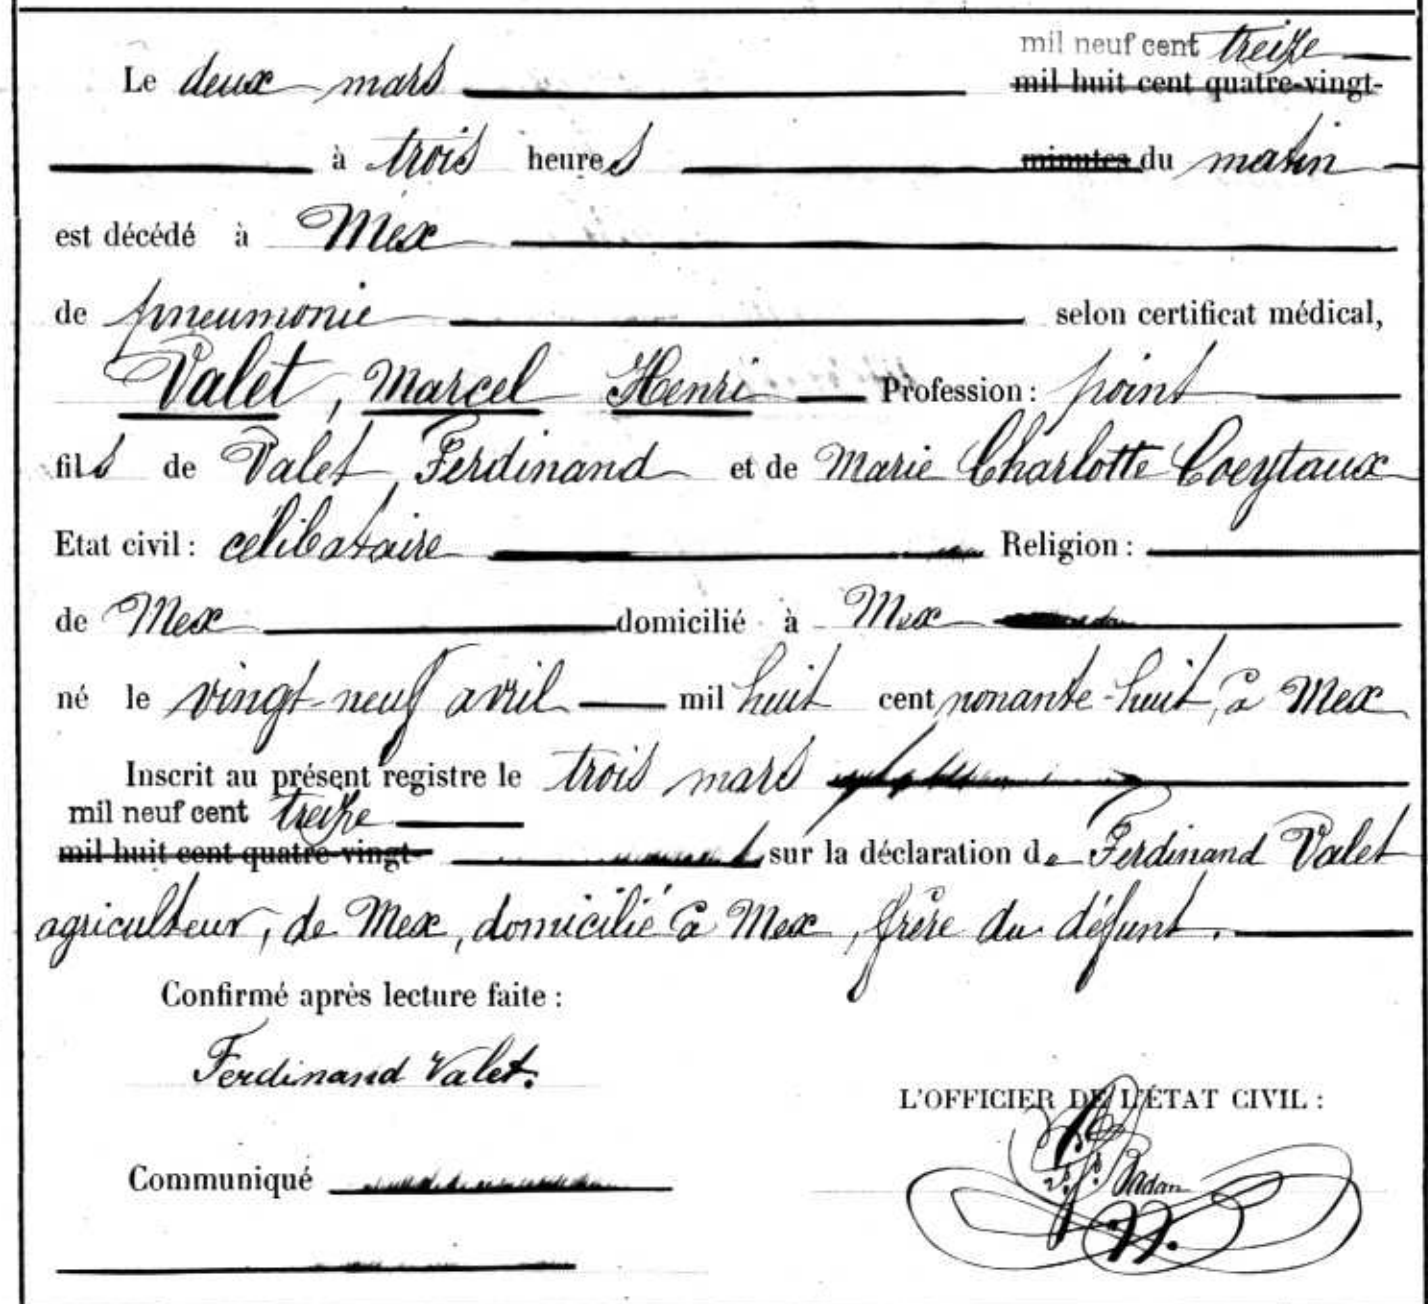 mil neuf cent treize
Le deux mars mil huit cent quatre-vingt-
à trois heures minutes du matin
est décédé à Mex
de pneumonie selon certificat médical,
Valet, Marcel Henri Profession : point
fils de Valet Ferdinand et de Marie Charlotte Coeytaux
Etat civil : célibataire Religion :
de Mex domicilié à Mex
né le vingt-neuf avril mil huit cent nonante-huit, à Mex
Inscrit au présent registre le trois mars
mil neuf cent treize
mil huit cent quatre-vingt- sur la déclaration de Ferdinand Valet
agriculteur, de Mex, domicilié à Mex, frère du défunt.
Confirmé après lecture faite :
Ferdinand Valet.
L'OFFICIER DE L'ÉTAT CIVIL :
Badan
Communiqué